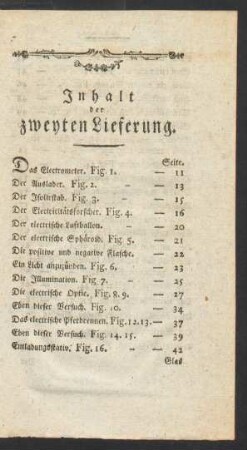 Inhalt
der
zweyten Lieferung.
Seite.
Das Electrometer. Fig 1. — 11
Der Auslader. Fig. 2. — 13
Der Isolirstab. Fig. 3. — 15
Der Electricitätsforscher. Fig. 4. — 16
Der electrische Luftballon. — 20
Der electrische Sphäroid. Fig 5. — 21
Die positive und negative Flasche. — 22
Ein Licht anzuzünden. Fig. 6. — 23
Die Illumination. Fig 7. — 25
Die electrische Optic. Fig. 8. 9. — 27
Eben dieser Versuch. Fig. 10. — 34
Das electrische Pferdrennen. Fig. 12. 13. — 37
Eben dieser Versuch. Fig. 14. 15. — 39
Einladungsstativ. Fig. 16. — 42
Glas